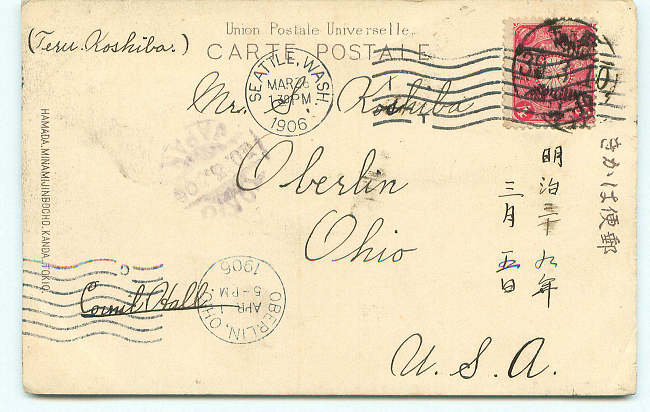 (Teru. Koshiba.)
Union Postale Universelle.
CARTE POSTALE
SEATTLE, WASH.
MAR
1 30 PM
1906
Mr. S. Koshiba
Oberlin
Ohio
U. S. A.
Council Hall
OBERLIN, OHIO
APR 1
5 - PM
1906
明治三十九年
三月五日
きかは便郵
HAMADA, MINAMIJINBOCHO, KANDA, TOKIO.